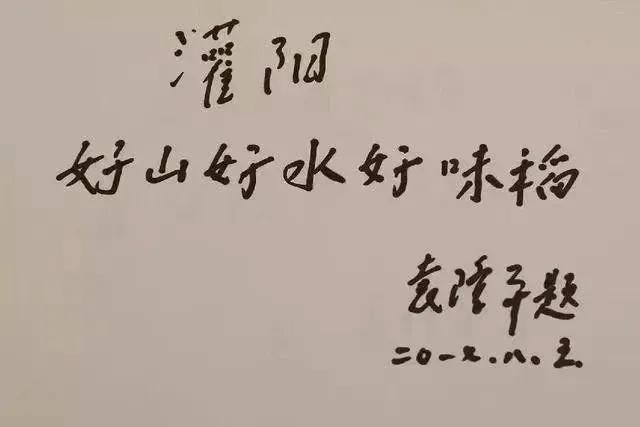 灌阳
好山好水好味稻
袁隆平题
二〇一七.八.五.